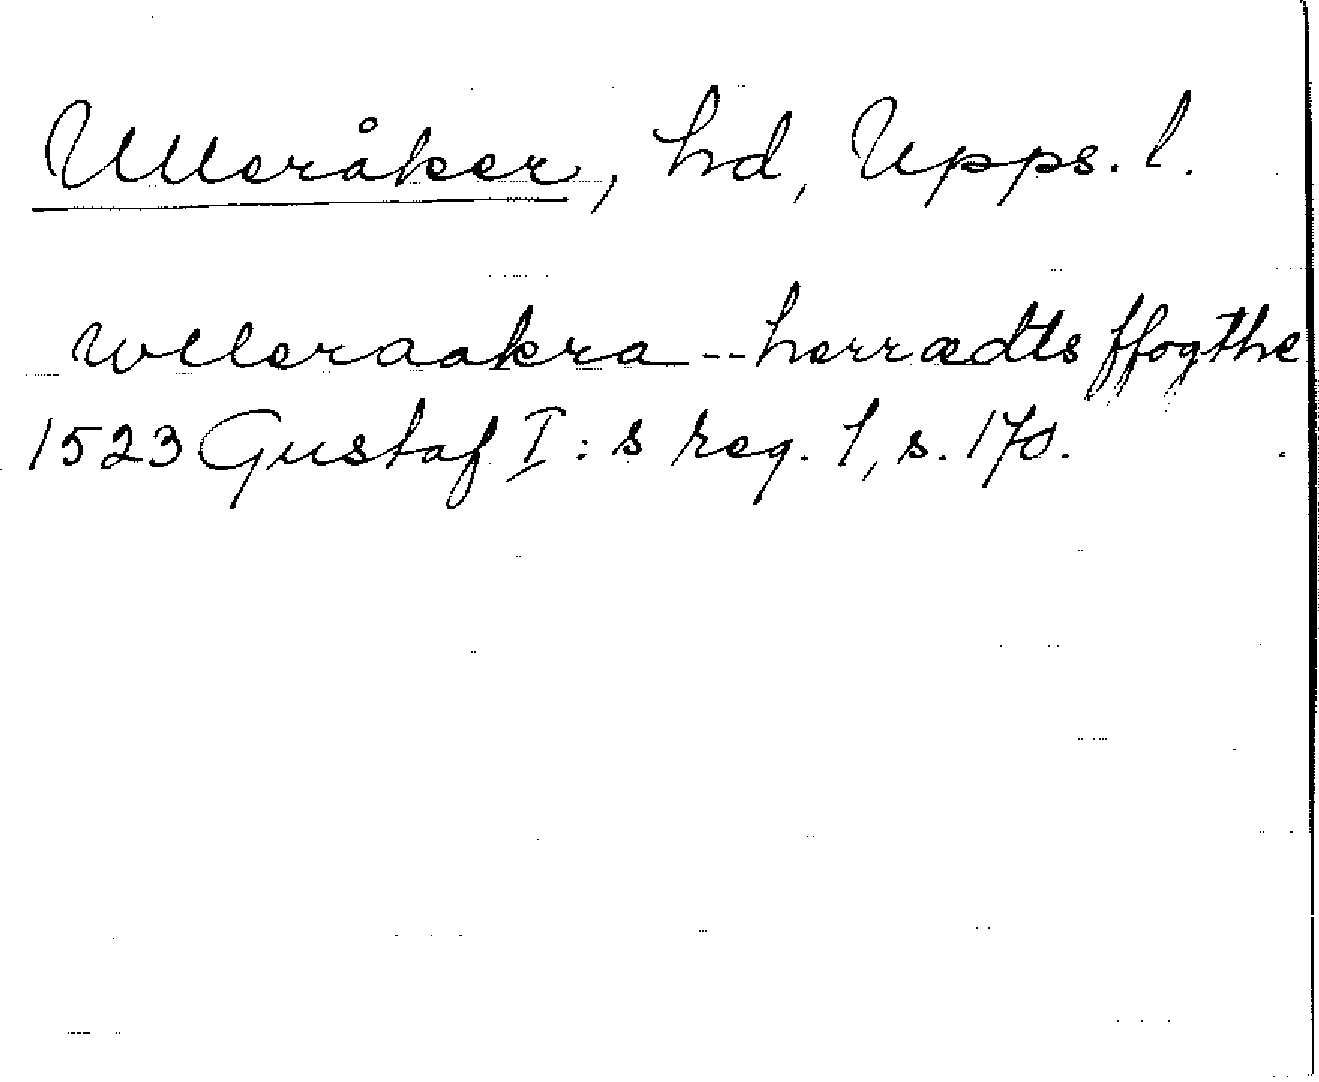 Ulleråker, hd, Upps. l.
wlleraakra -- herrædts ffogthe
1523 Gustaf I:s reg. 1, s. 170.